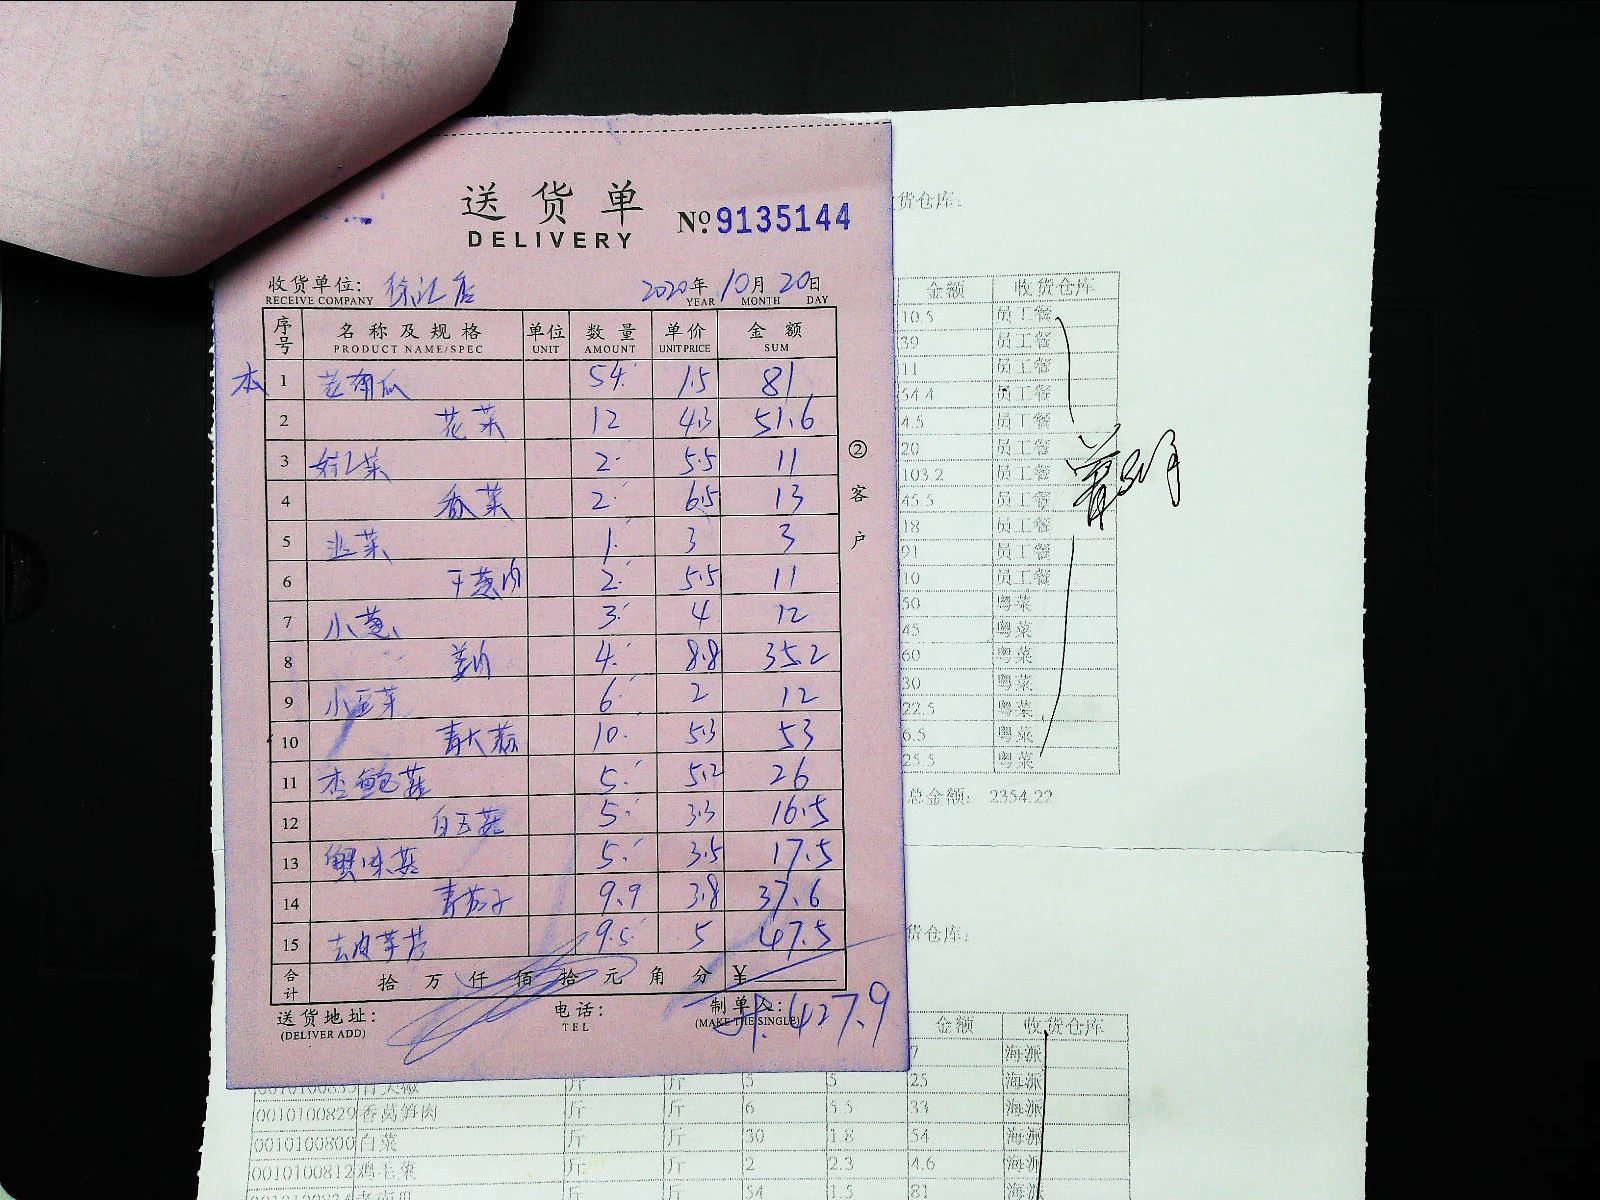 送货单
DELIVERY
№ 9135144
收货单位: 徐汇店 2020年10月20日
RECEIVE COMPANY YEAR MONTH DAY
序号 名称及规格 单位 数量 单价 金额
PRODUCT NAME/SPEC UNIT AMOUNT UNIT PRICE SUM
本 1 54 1.5 81
2 花菜 12 4.3 51.6
3 2 5.5 11
4 香菜 2 6.5 13
5 韭菜 1 3 3
6 干葱肉 2 5.5 11
7 小葱 3 4 12
8 姜肉 4 8.8 35.2
9 小豆芽 6 2 12
10 青大蒜 10 5.3 53
11 杏鲍菇 5 5.2 26
12 白玉菇 5 3.3 16.5
13 蟹味菇 5 3.5 17.5
14 青茄子 9.9 3.8 37.6
15 去皮芋艿 9.5 5 47.5
合计 拾 万 仟 佰 拾 元 角 分 ¥
送货地址: 电话: 制单人: 427.9
(DELIVER ADD) TEL (MAKE THE SINGLE)
②客户
货仓库:
金额 收货仓库
10.5 员工餐
39 员工餐
11 员工餐
54.4 员工餐
4.5 员工餐
20 员工餐
103.2 员工餐
45.5 员工餐
18 员工餐
91 员工餐
10 员工餐
50 粤菜
45 粤菜
60 粤菜
30 粤菜
22.5 粤菜
6.5 粤菜
25.5 粤菜
总金额: 2354.22
货仓库:
金额 收货仓库
7 海派
斤 斤 5 5 25 海派
0010100829 香莴笋肉 斤 斤 6 5.5 33 海派
0010100800 白菜 斤 斤 30 1.8 54 海派
0010100812 鸡毛菜 斤 斤 2 2.3 4.6 海派
斤 斤 54 1.5 81 海派